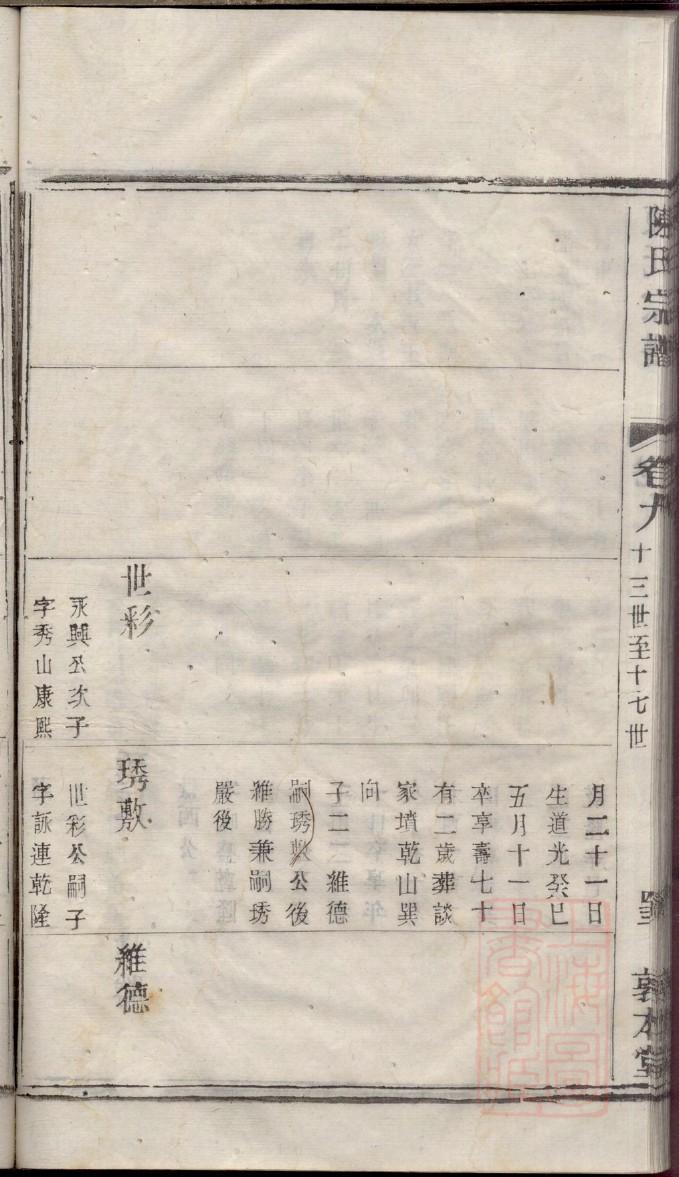 陳氏宗譜
卷九
十三世至十七世
敦本堂
月二十一日
生道光癸巳
五月十一日
卒享壽七十
有二歲葬談
家墳乾山巽
向
子二二維德
嗣琇敷公後
維勝兼嗣琇
嚴後
世彩
永興公次子
字秀山康熙
琇敷
世彩公嗣子
字詠連乾隆
維德